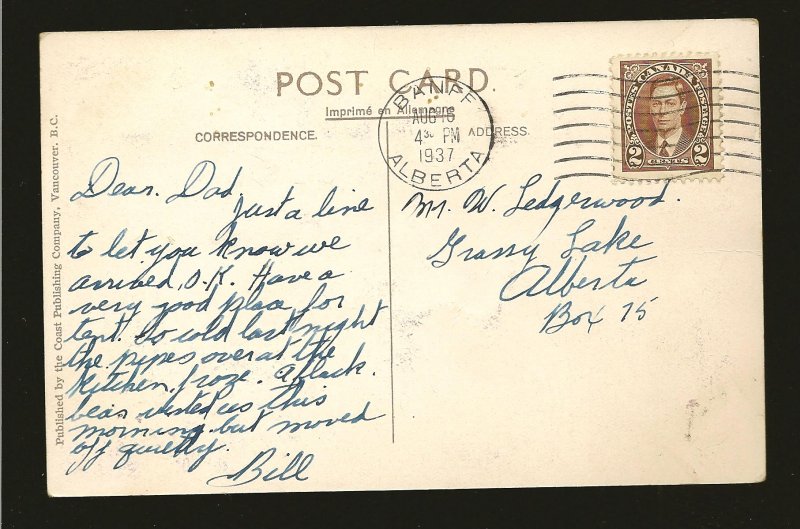 POST CARD.
Imprimé en Allemagne
CORRESPONDENCE.
ADDRESS.
BANFF
AUG 16
4 30 PM
1937
ALBERTA
POSTES CANADA POSTAGE
2 CENTS 2
Published by the Coast Publishing Company, Vancouver. B.C.
Dear. Dad.
Just a line
to let you know we
arrived, O.K. Have a
very good place for
tent. So cold last night
the pipes over at the
kitchen froze. A black.
bear visited us this
morning but moved
off quietly.
Bill
Mr. W. Ledgerwood.
Grassy Lake
Alberta
Box 75